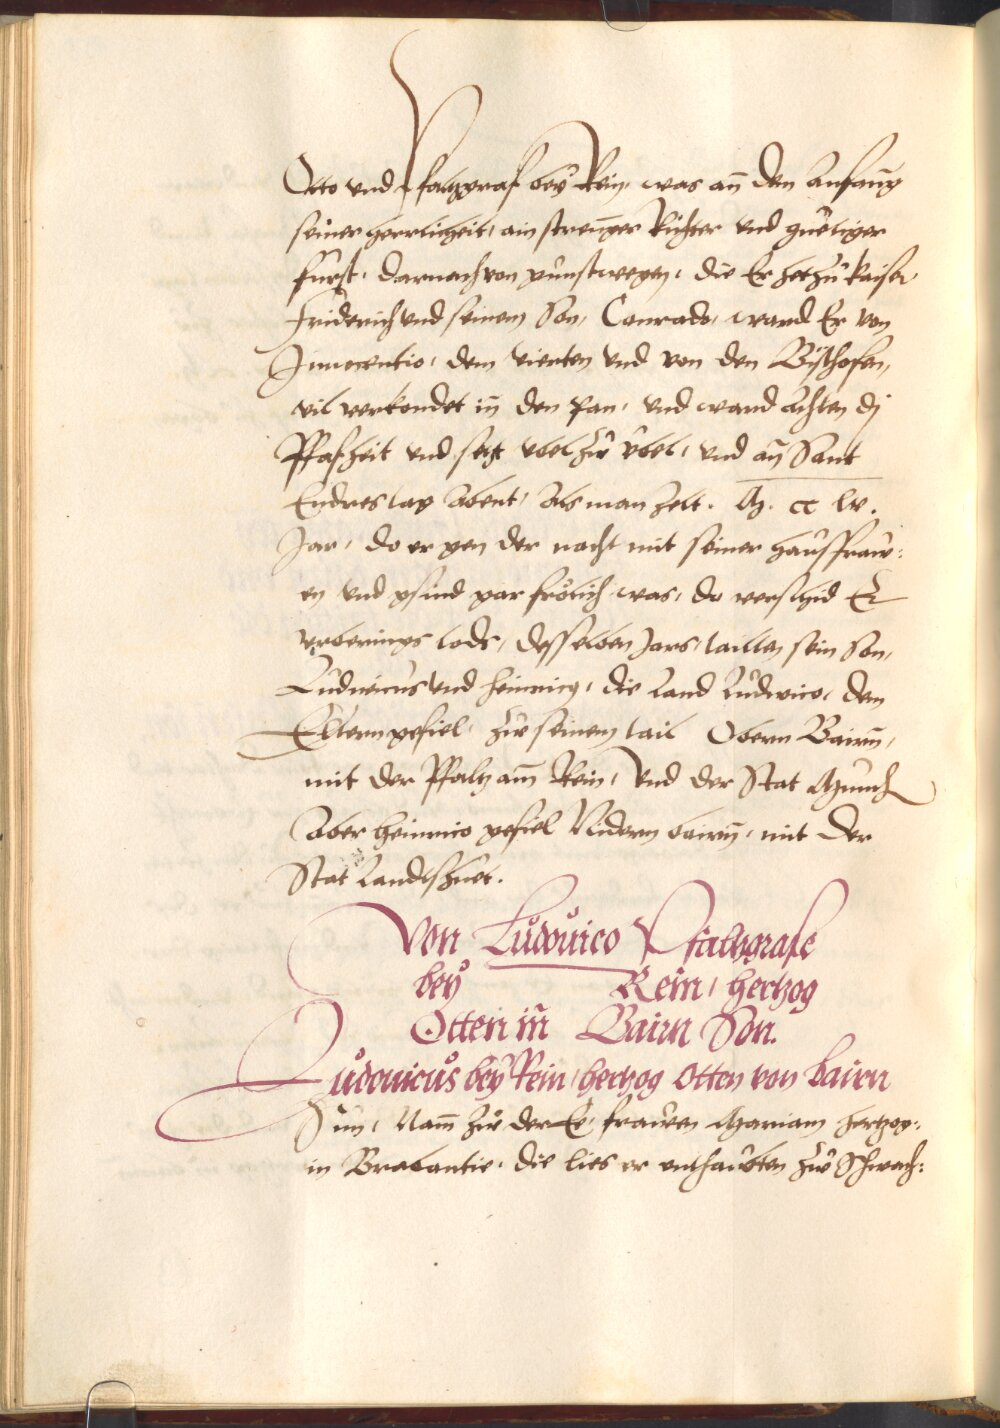 Otto vnd Pfaltzgraf beÿ Rein, was an̄ dem Anfan̄g
seiner herrlicheit, ain stren̄ger Richter vnd guetiger
fürst, darnach von gunst wegen, die Er het zů kaiser
Friderich vnd seinem Son, Conrado, ward Er von
Innocentio, dem vierten vnd von den Bischofen,
vil verkondet in̄ den pan, vnd ward achten dj
Pfafheit vnd setzt vbel zů vbel, vnd an̄ Sant
Endres tag abent, Als man zelt. M. cc lv.
Jar, do er gen der nacht mit seiner hausfraw:
en vnd gsind gar frölich was, do verschid Er
vrberings tods, desselben Jars, tailten sein Son,
Ludwicus vnd heinricq, die Land Ludwico, dem
Eltern gefiel, zů seinem tail Obern Bairn̄,
mit der Pfaltz am̄ Rein, vnd der Stat Munch
Aber heinrico gefiel Nidern bairn̄, mit der
Stat Landshuet.
Von Ludouico Pfaltzgrafe
beÿ Rein, hertzog
Otten in̄ Bairn Son.
Ludouicus beÿ Rein, hertzog Otten von bairn
Sun, Nam̄ zů der Ee, frawen Mariam hertzog:
in Brabantie, die lies er enthaubten zů Schwäch: